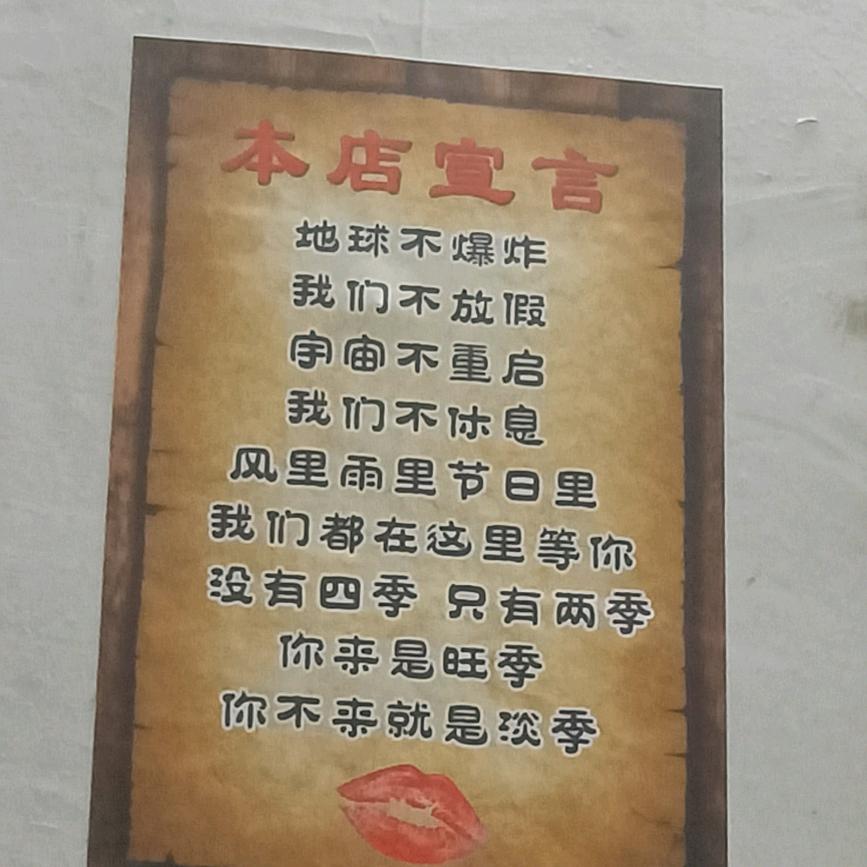 本店宣言
地球不爆炸
我们不放假
宇宙不重启
我们不休息
风里雨里节日里
我们都在这里等你
没有四季 只有两季
你来是旺季
你不来就是淡季